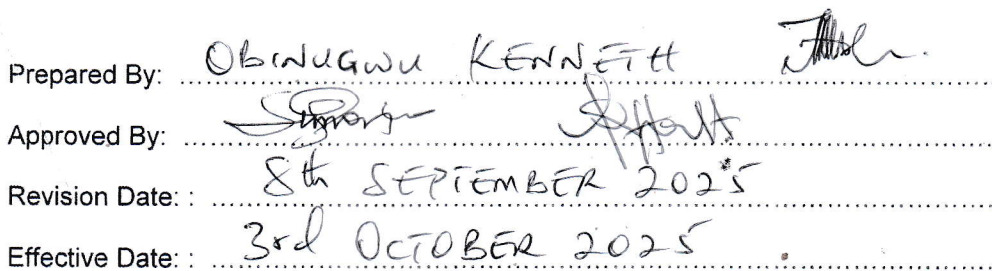 Prepared By: OBINUGWU KENNETH
Approved By:
Revision Date: : 8th SEPTEMBER 2025
Effective Date: : 3rd OCTOBER 2025